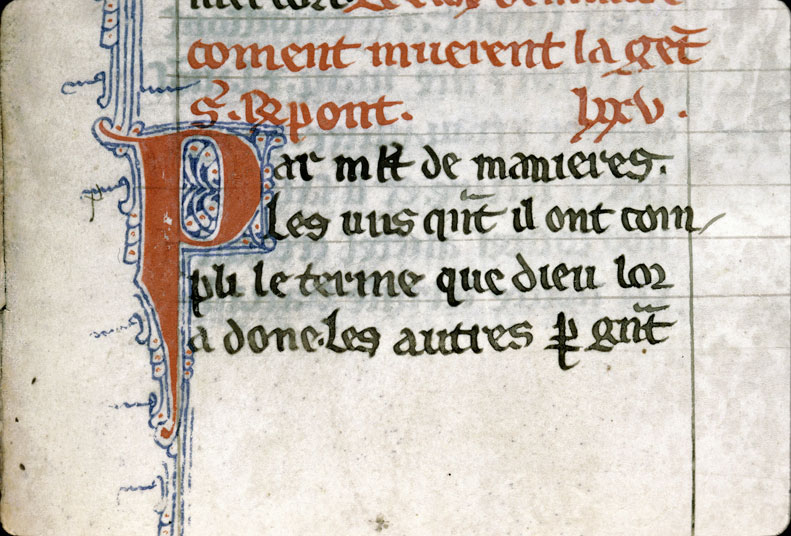 coment muerent la get̃
S̃. Respont. lxxv.
Par mlt de manieres.
Les uns qñt il ont com/
pli le terme que dieu lor
a done. Les autres ꝑ gñt